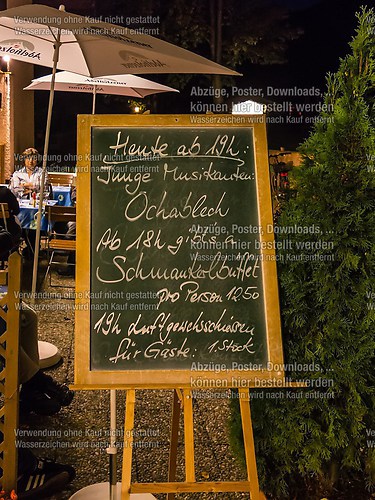 Heute ab 19h:
Junge Musikanten:
Ochablech
Ab 18h
Schmankerlbuffet
pro Person 12.50
19h Luftgewehrschiessen
für Gäste: 1. Stock
Verwendung ohne Kauf nicht gestattet
Wasserzeichen wird nach Kauf entfernt
Abzüge, Poster, Downloads, ...
können hier bestellt werden
Wasserzeichen wird nach Kauf entfernt
Verwendung ohne Kauf nicht gestattet
Wasserzeichen wird nach Kauf entfernt
Abzüge, Poster, Downloads, ...
können hier bestellt werden
Wasserzeichen wird nach Kauf entfernt
Verwendung ohne Kauf nicht gestattet
Wasserzeichen wird nach Kauf entfernt
Abzüge, Poster, Downloads, ...
können hier bestellt werden
Wasserzeichen wird nach Kauf entfernt
Verwendung ohne Kauf nicht gestattet
Wasserzeichen wird nach Kauf entfernt